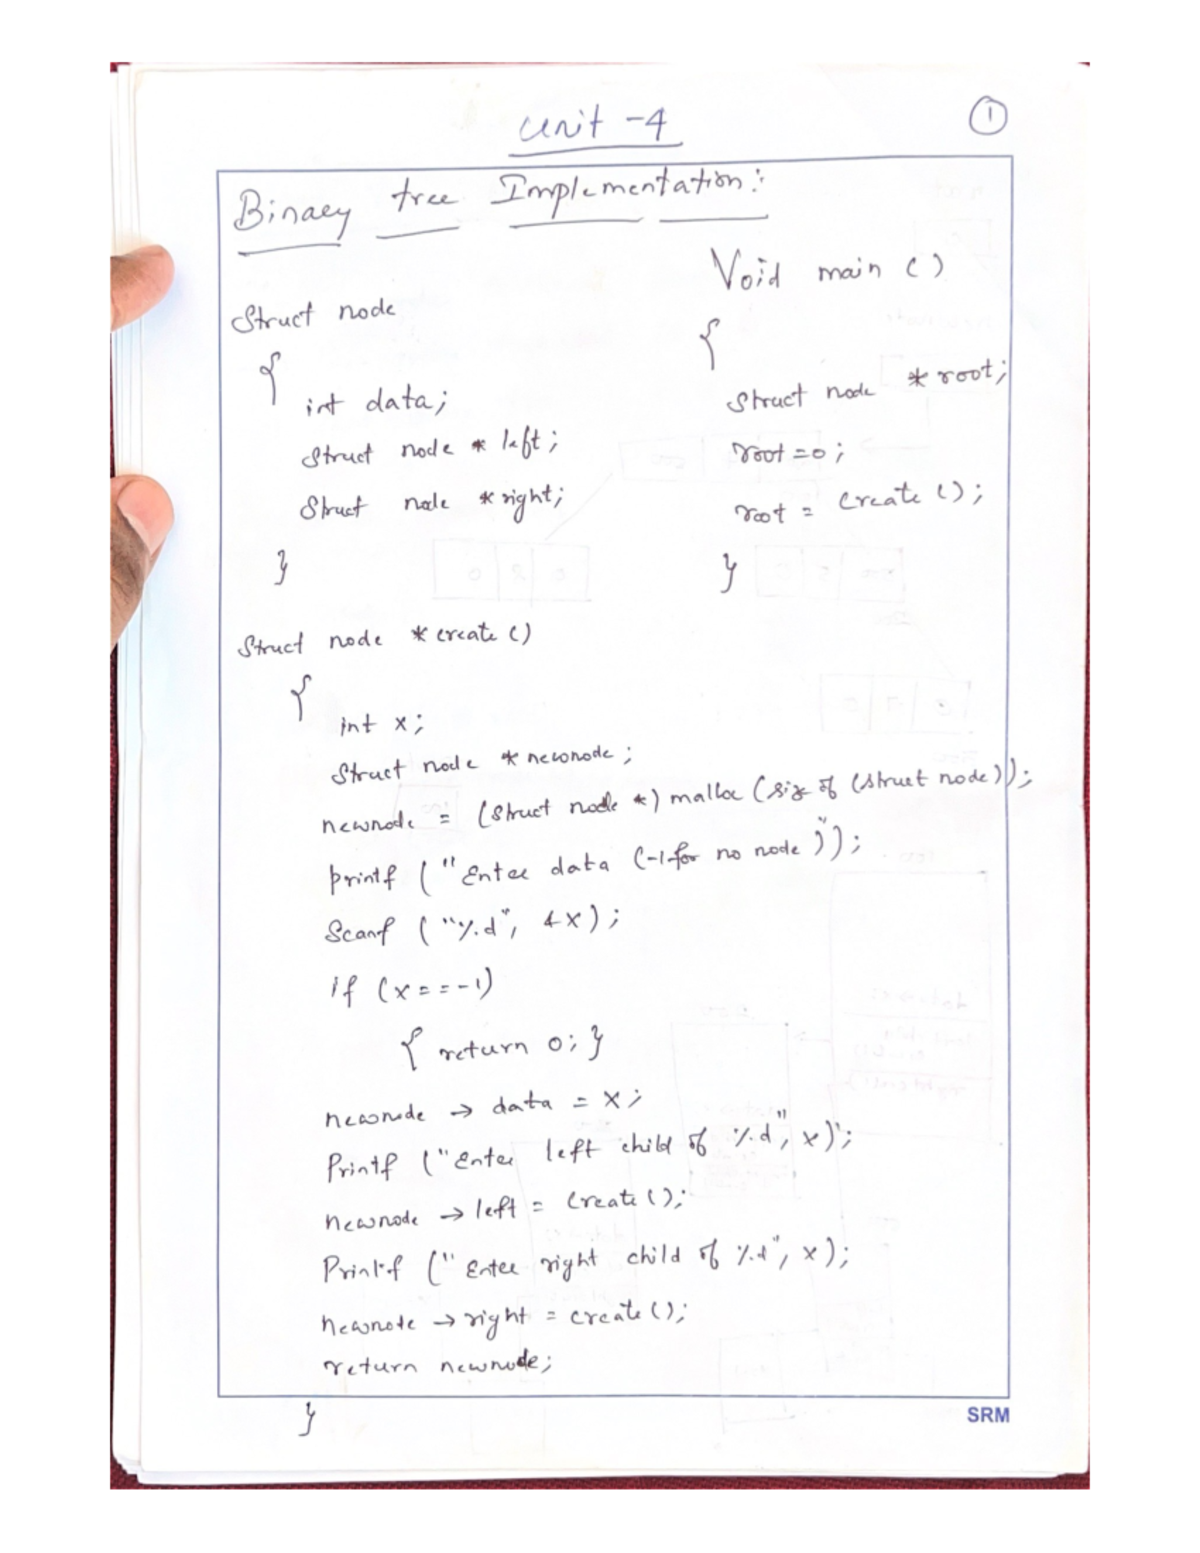 Unit - 4
1
Binary tree Implementation:
Struct node
{
int data;
Struct node * left;
Struct node * right;
}
Void main ()
{
Struct node * root;
root = 0;
root = create ();
}
Struct node * create ()
{
int x;
Struct node * newnode;
newnode = (Struct node *) malloc (size of (struct node));
printf ("Enter data (-1 for no node)");
Scanf ("%d", &x);
if (x == -1)
{ return 0; }
newnode → data = x;
Printf ("Enter left child of %d", x);
newnode → left = create ();
Printf ("Enter right child of %d", x);
newnode → right = create ();
return newnode;
}
SRM